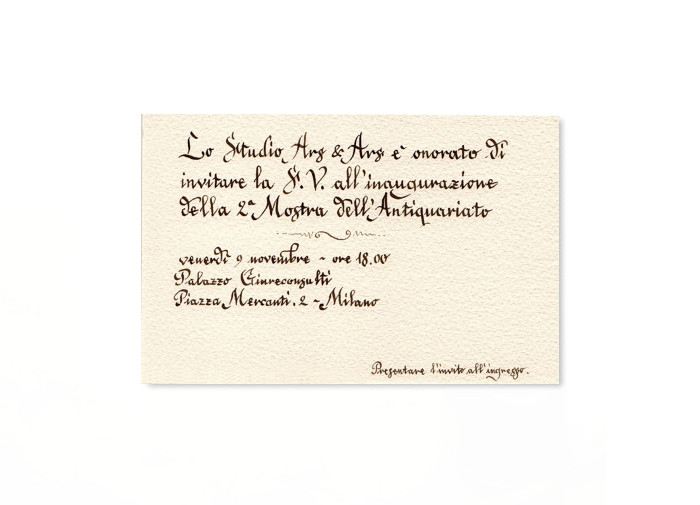 Lo Studio Ars & Ars è onorato di
invitare la S.V. all'inaugurazione
della 2ª Mostra dell'Antiquariato
venerdì 9 novembre ~ ore 18.00
Palazzo Giureconsulti
Piazza Mercanti, 2 ~ Milano
Presentare l'invito all'ingresso.